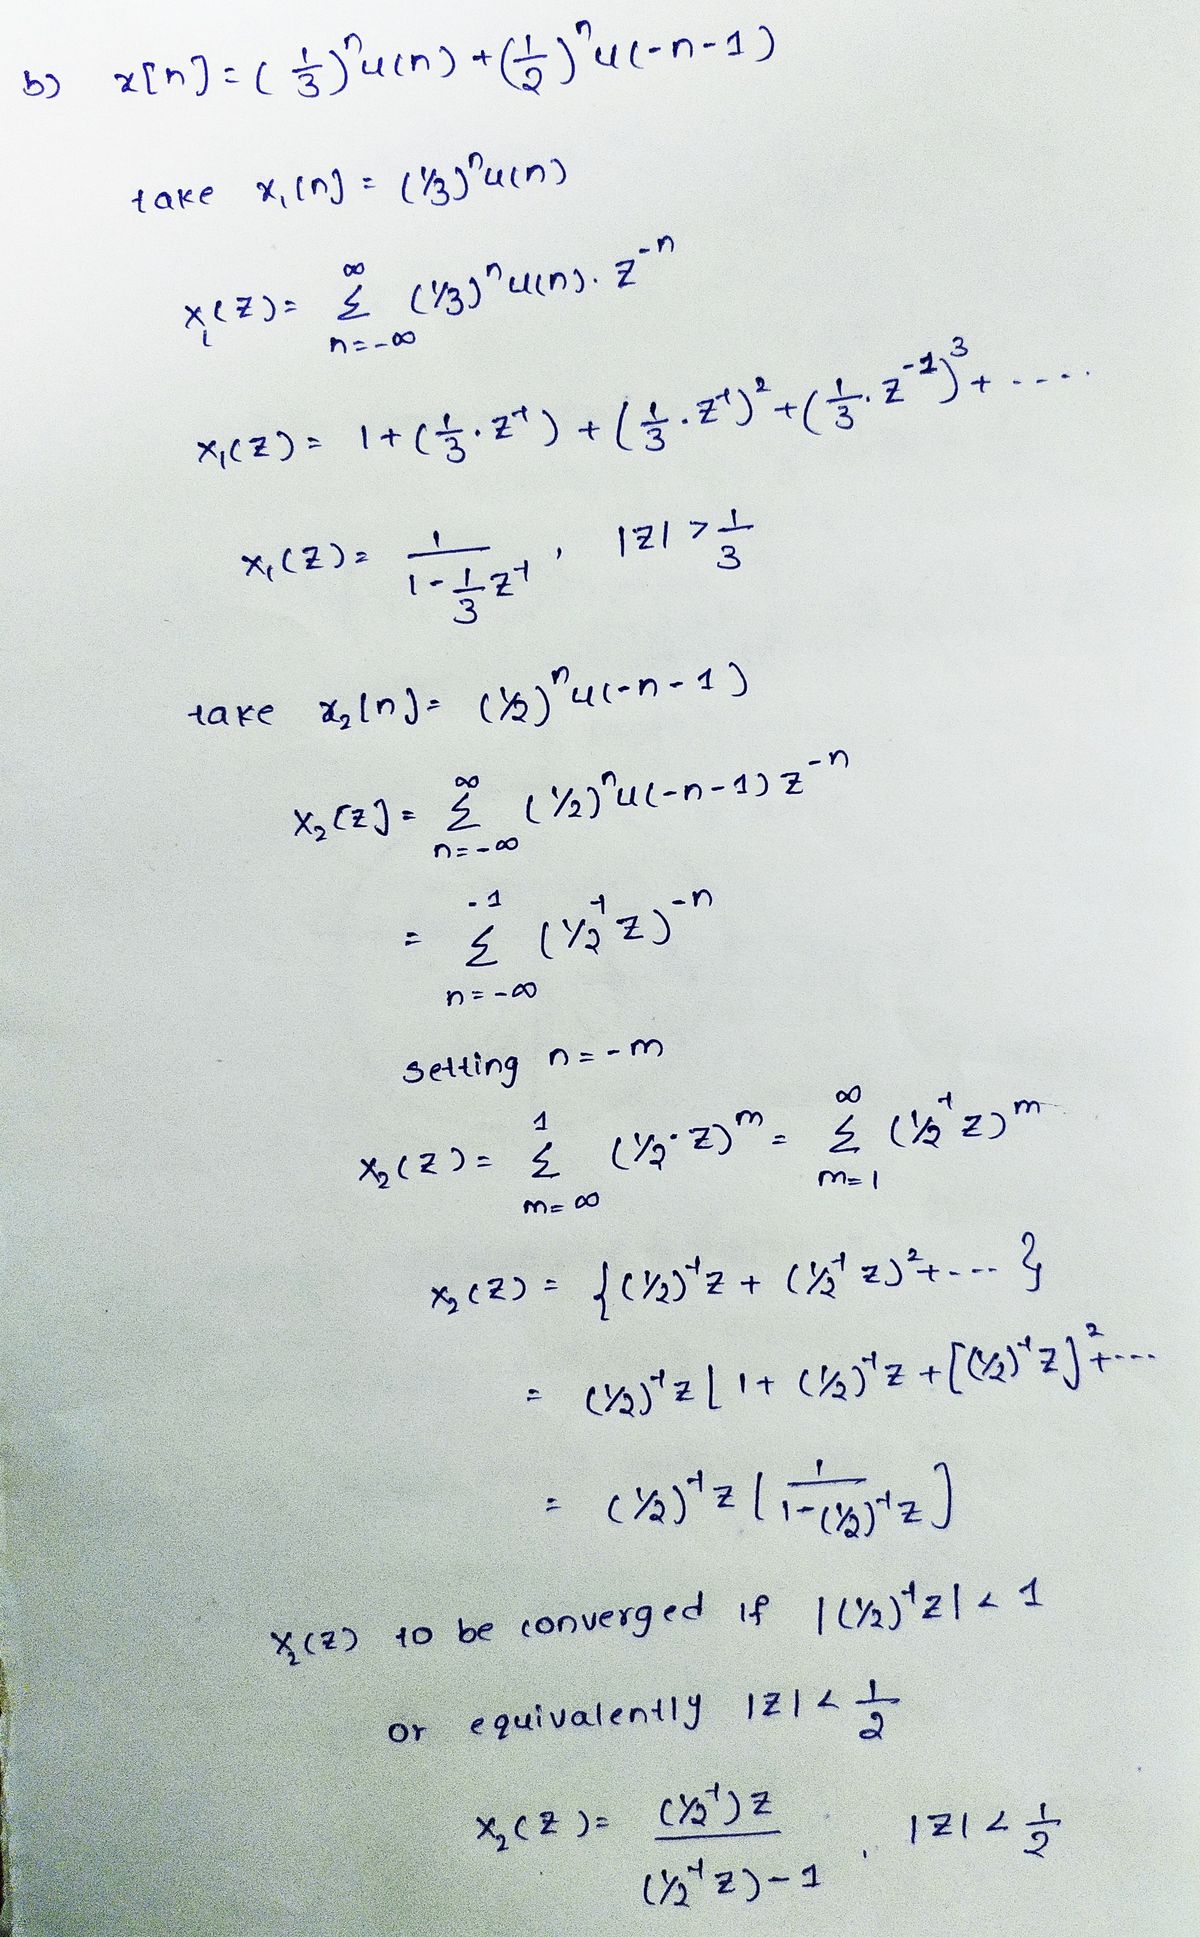 b) x[n] = (1/3)^n u(n) + (1/2)^n u(-n-1)
take x₁[n] = (1/3)^n u(n)
X₁(z) = Σ_{n=-∞}^{∞} (1/3)^n u(n). z^{-n}
X₁(z) = 1 + (1/3 . z^{-1}) + (1/3 . z^{-1})^2 + (1/3 . z^{-1})^3 + ....
X₁(z) = 1/(1 - 1/3 z^{-1}) , |z| > 1/3
take x₂[n] = (1/2)^n u(-n-1)
X₂[z] = Σ_{n=-∞}^{∞} (1/2)^n u(-n-1) z^{-n}
= Σ_{n=-∞}^{-1} (1/2^{-1} z)^{-n}
setting n = -m
X₂(z) = Σ_{m=∞}^{1} (1/2 . z)^m = Σ_{m=1}^{∞} (1/2^{-1} z)^m
X₂(z) = {(1/2)^{-1} z + (1/2^{-1} z)^2 + .... }
= (1/2)^{-1} z [ 1 + (1/2)^{-1} z + [(1/2)^{-1} z]^2 + ....
= (1/2)^{-1} z [ 1/(1 - (1/2)^{-1} z) ]
X₂(z) to be converged if |(1/2)^{-1} z| < 1
or equivalently |z| < 1/2
X₂(z) = (1/2^{-1}) z / ((1/2^{-1} z) - 1) , |z| < 1/2